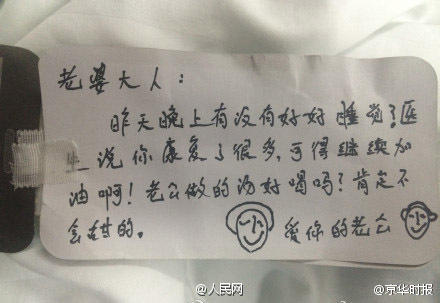 老婆大人：
昨天晚上有没有好好睡觉？医
生说你康复了很多，可得继续加
油啊！老公做的汤好喝吗？肯定不
会甜的。
爱你的老公
@人民网
@京华时报